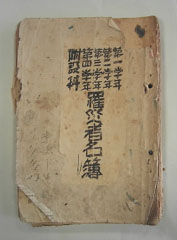 第一学年
第二学年
第三学年
第四学年
附設科
罹災者名簿